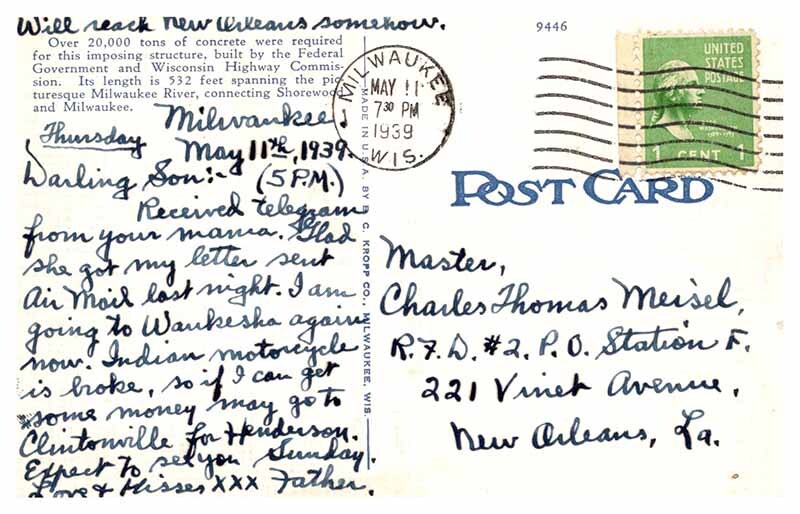 Will reach New Orleans somehow.
Over 20,000 tons of concrete were required
for this imposing structure, built by the Federal
Government and Wisconsin Highway Commis-
sion. Its length is 532 feet spanning the pic-
turesque Milwaukee River, connecting Shorewood
and Milwaukee.
Milwaukee.
Thursday
May 11th, 1939.
Darling Son:- (5 P.M.)
Received telegram
from your mama. Glad
she got my letter sent
Air Mail last night. I am
going to Waukesha again
now. Indian motorcycle
is broke, so if I can get
some money may go to
Clintonville for Henderson.
Expect to see you Sunday.
Love & Kisses XXX Father.
MADE IN U.S.A. BY E. C. KROPP CO., MILWAUKEE, WIS.
9446
MILWAUKEE
MAY 11
7 30 PM
1939
WIS.
UNITED
STATES
POSTAGE
1 CENT 1
POST CARD
Master,
Charles Thomas Meisel,
R.F.D. #2. P.O. Station F.
221 Vinet Avenue,
New Orleans, La.